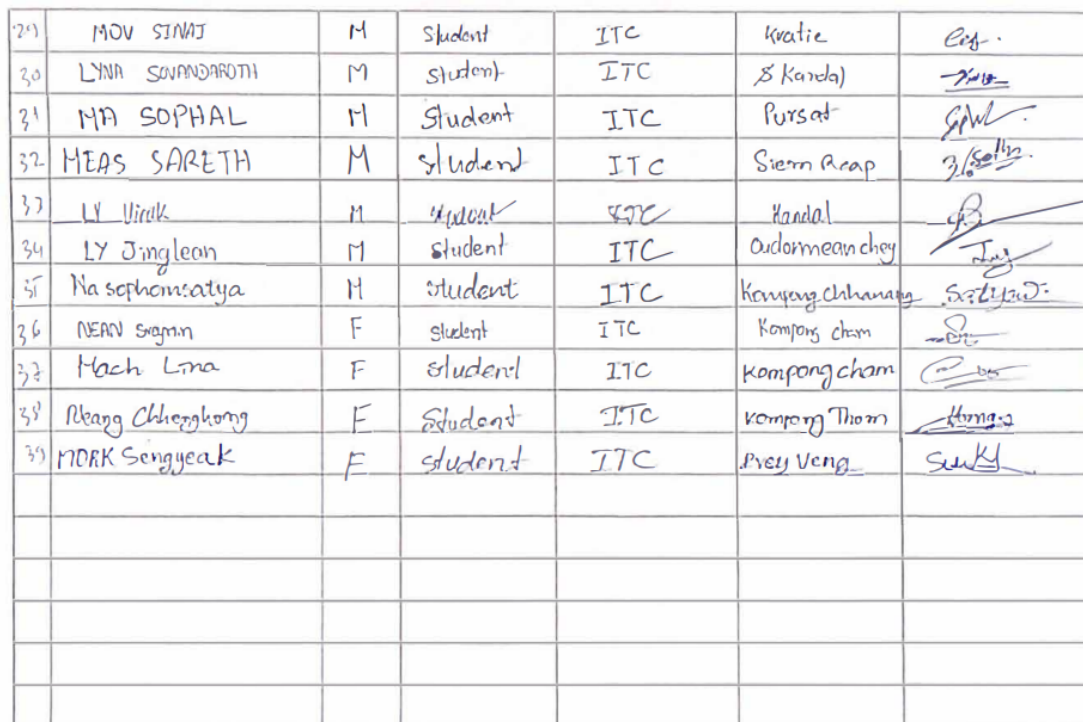 29 MOV SINAJ M Student ITC Kratie
30 LYNA SOVANDAROTH M Student ITC Kandal
31 MA SOPHAL M Student ITC Pursat
32 MEAS SARETH M Student ITC Siem Reap
33 LY Virak M Student ITC Kandal
34 LY Jinglean M Student ITC Oudormeanchey
35 Na sophomsatya M Student ITC Kompong Chhanang
36 NEAN F Student ITC Kompong cham
37 Mach Lina F Student ITC Kompong cham
38 Neang Chhenghong F Student ITC Kompong Thom
39 MORK Sengyeak F Student ITC Prey Veng